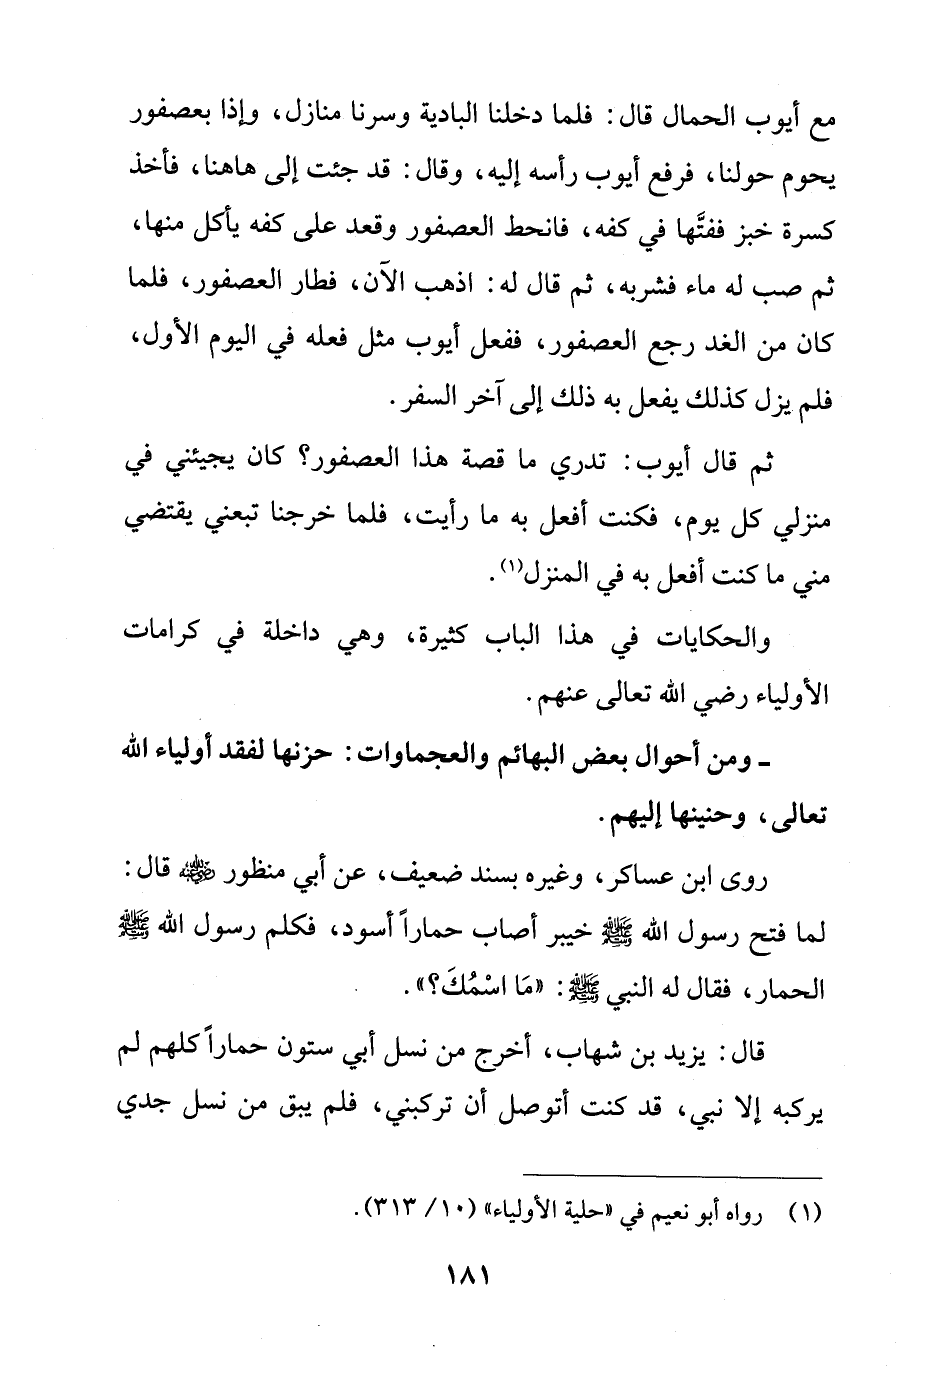 مع أيوب الحمال قال: فلما دخلنا البادية وسرنا منازل، وإذا بعصفور
يحوم حولنا، فرفع أيوب رأسه إليه، وقال: قد جئت إلى هاهنا، فأخذ
كسرة خبز ففتَّها في كفه، فانحط العصفور وقعد على كفه يأكل منها،
ثم صب له ماء فشربه، ثم قال له: اذهب الآن، فطار العصفور، فلما
كان من الغد رجع العصفور، ففعل أيوب مثل فعله في اليوم الأول،
فلم يزل كذلك يفعل به ذلك إلى آخر السفر.
ثم قال أيوب: تدري ما قصة هذا العصفور؟ كان يجيئني في
منزلي كل يوم، فكنت أفعل به ما رأيت، فلما خرجنا تبعني يقتضي
مني ما كنت أفعل به في المنزل(١).
والحكايات في هذا الباب كثيرة، وهي داخلة في كرامات
الأولياء رضي الله تعالى عنهم.
ـ ومن أحوال بعض البهائم والعجماوات: حزنها لفقد أولياء الله
تعالى، وحنينها إليهم.
روى ابن عساكر، وغيره بسند ضعيف، عن أبي منظور رضي الله عنه قال:
لما فتح رسول الله ﷺ خيبر أصاب حماراً أسود، فكلم رسول الله ﷺ
الحمار، فقال له النبي ﷺ: «مَا اسْمُكَ؟».
قال: يزيد بن شهاب، أخرج من نسل أبي ستون حماراً كلهم لم
يركبه إلا نبي، قد كنت أتوصل أن تركبني، فلم يبق من نسل جدي
(١) رواه أبو نعيم في «حلية الأولياء» (١٠/ ٣١٣).
١٨١